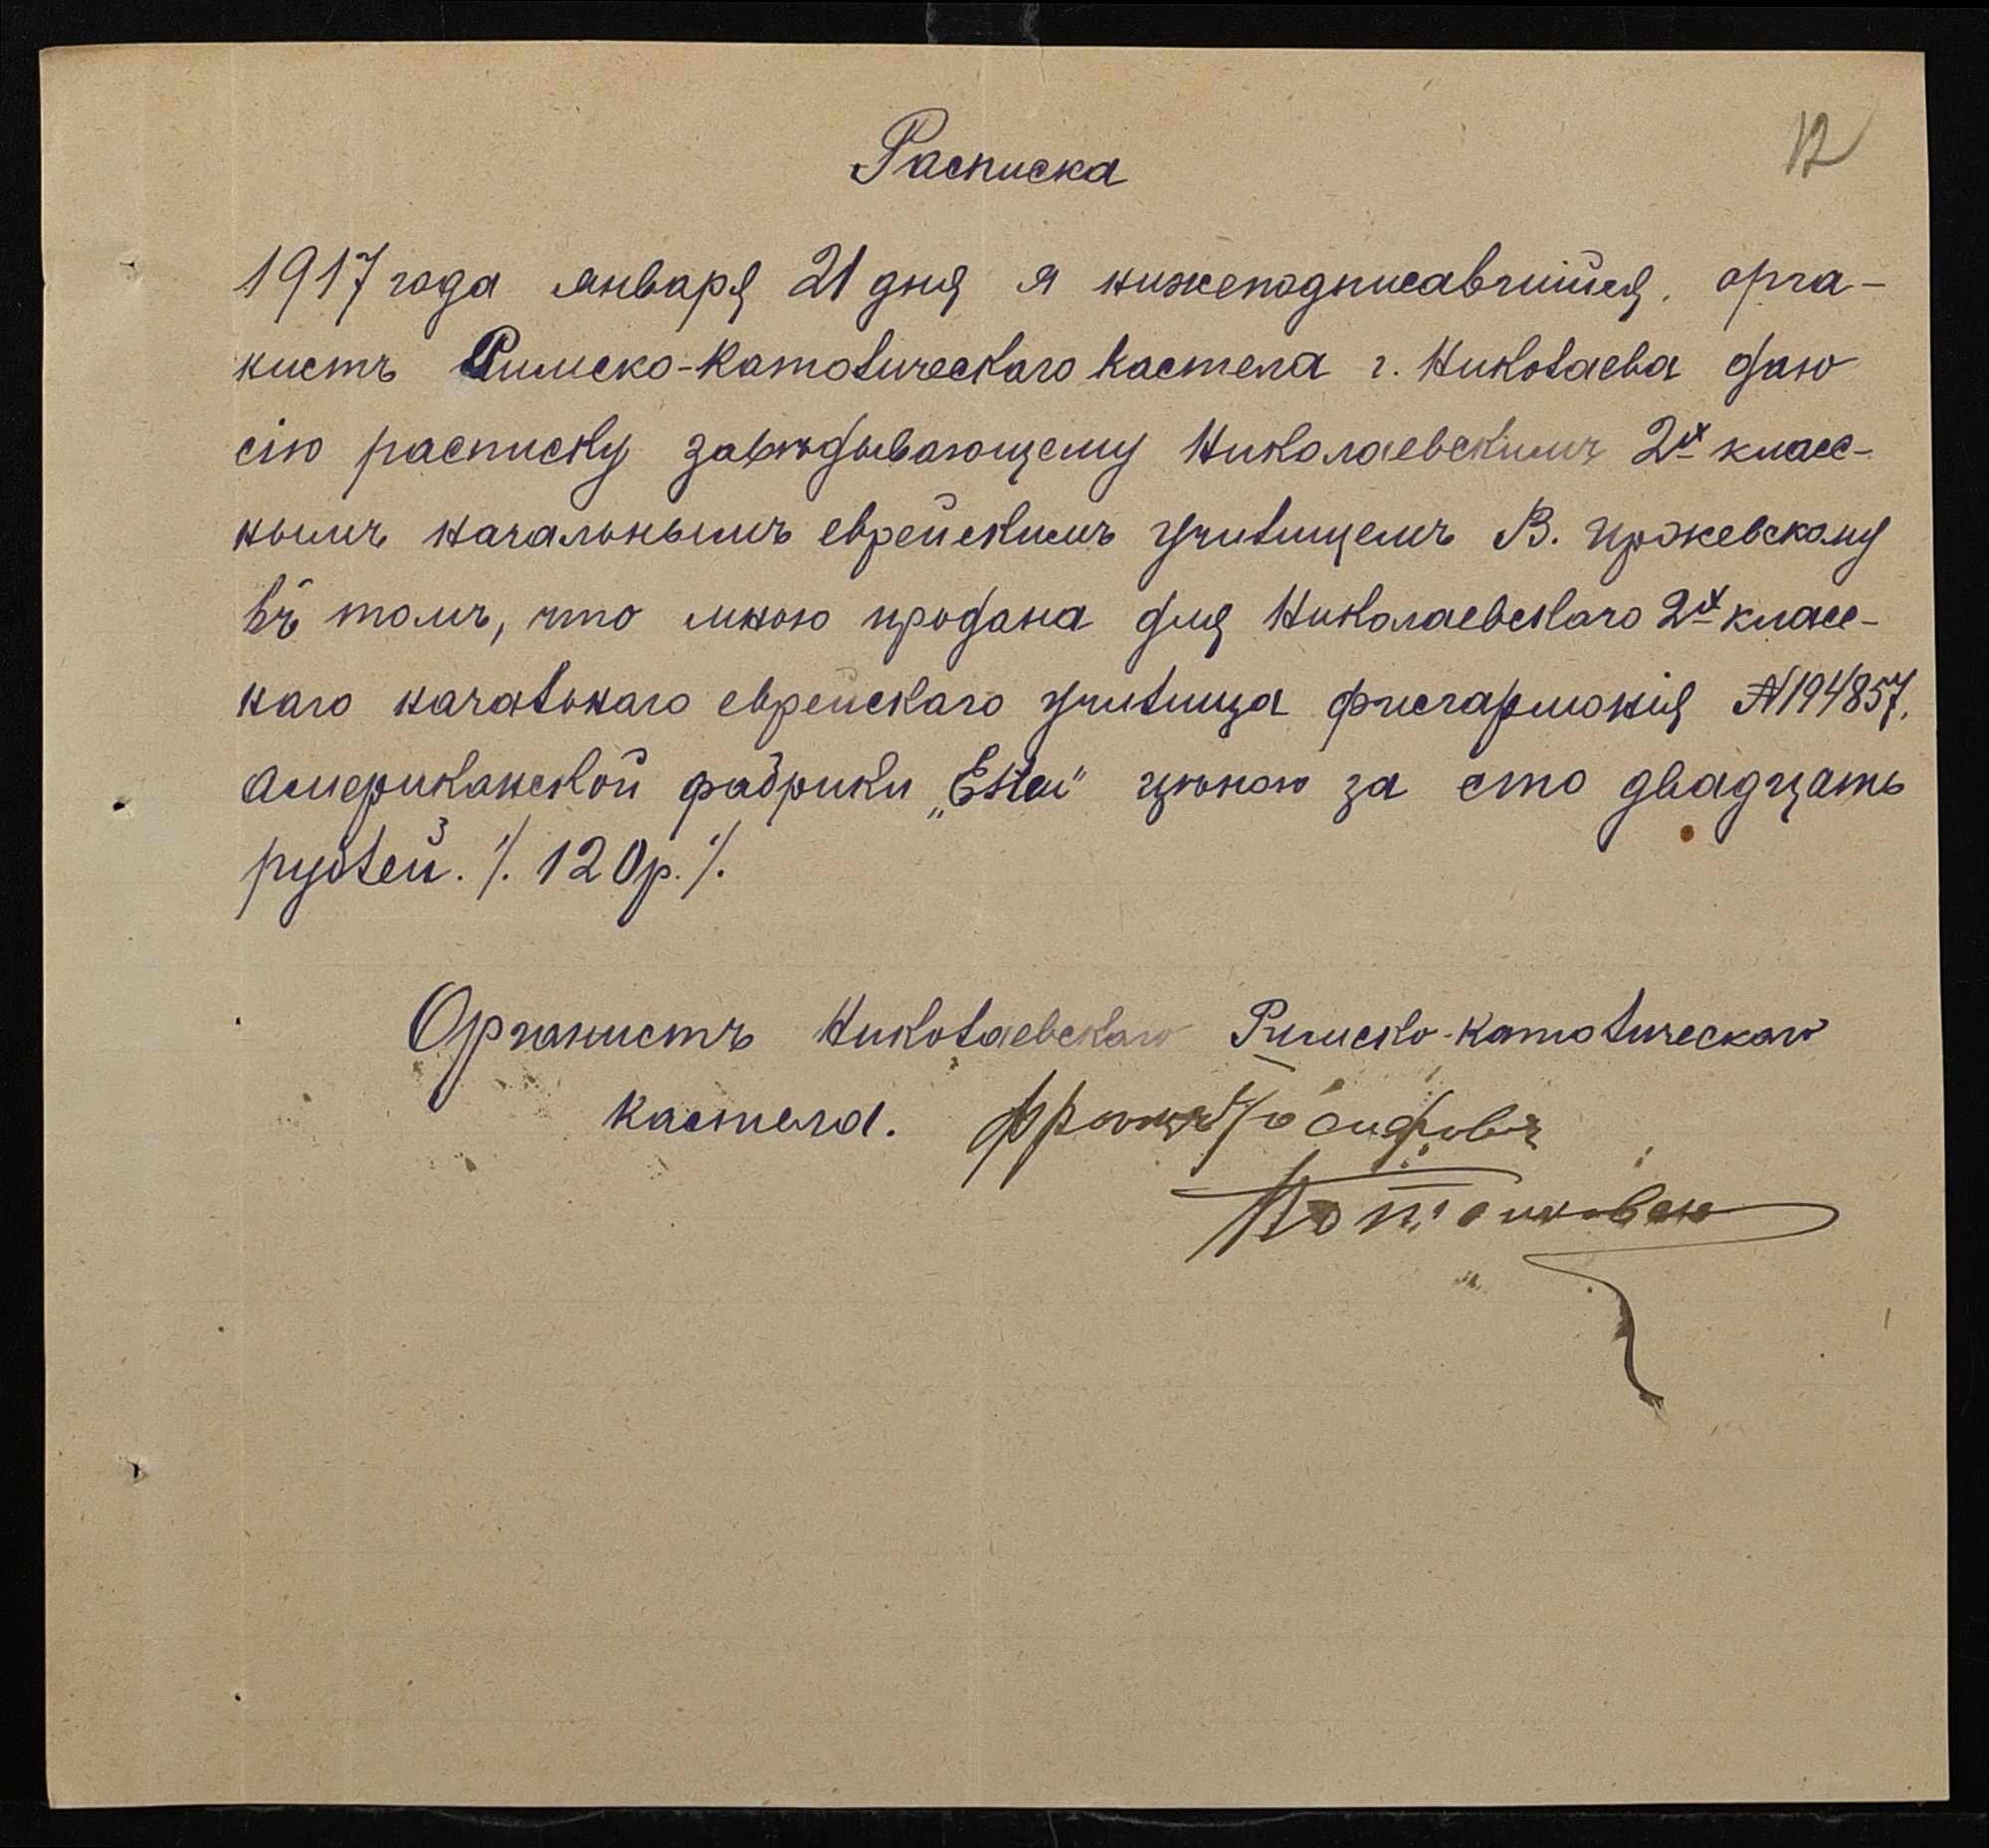 12
Расписка
1917 года января 21 дня я нижеподписавшійся, орга-
нистъ Римско-Католическаго Костела г. Николаева даю
сію расписку завѣдывающему Николаевскимъ 2х класс-
нымъ начальнымъ еврейскимъ училищемъ В.
въ томъ, что мною продана для Николаевскаго 2х класс-
наго начальнаго еврейскаго училища фисгармонія № 194857,
Американской фабрики „Estei“ цѣною за сто двадцать
рублей. /. 120 р. /.
Органистъ Николаевскаго Римско-Католическаго
Костела. Францъ Іосифовъ